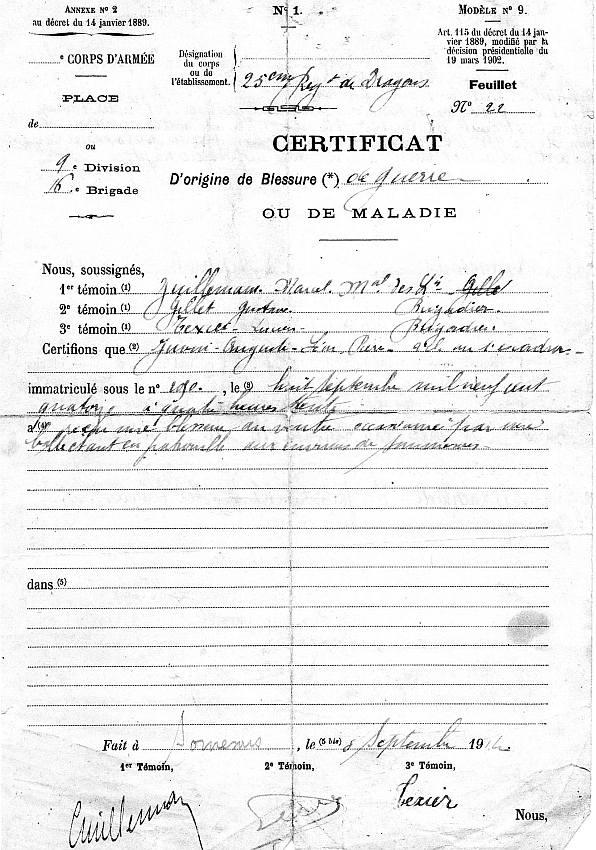 ANNEXE N° 2
au décret du 14 janvier 1889.
N° 1.
MODÈLE N° 9.
Art. 115 du décret du 14 jan-
vier 1889, modifié par la
décision présidentielle du
19 mars 1902.
e CORPS D'ARMÉE
Désignation
du corps
ou de
l'établissement.
25eme Regt de Dragons
PLACE
Feuillet
N° 22
de
ou
9e Division
16e Brigade
CERTIFICAT
D'origine de Blessure (*) de guerre
OU DE MALADIE
Nous, soussignés,
1er témoin (1) Guillemain Marcel Mal des
2e témoin (1) Gillet Gustave Brigadier
3e témoin (1) Texier Lucien Brigadier
Certifions que (2) Auguste Léon Pierre
immatriculé sous le n° , le (3) huit septembre mil neuf cent
quatorze à quatre heures trente
a (4) reçu une blessure au ventre occasionnée par une
balle étant en patrouille aux environs de
dans (5)
Fait à , le (5 bis) 8 Septembre 1914
1er Témoin, 2e Témoin, 3e Témoin,
Guillemain Texier
Nous,